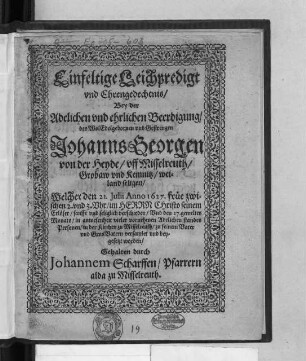 Einfeltige Leichpredigt
vnd Ehrengedechtnis/
Bey der
Adelichen vnd ehrlichen Beerdigung/
des WolEdelgebornen vnd Gestrengen
Johanns Georgen
von der Heyde/ vff Misselreuth/
Grobaw vnd Kemnitz/ wei-
land seligen/
Welcher den 21. Julii Anno 1627. früe zwi-
schen 2. vnd 3. Vhr im HERRN Christo seinem
Erlöser/ sanfft vnd seliglich verschieden/ Vnd den 27. gemelten
Monats/ in ansehnlicher vieler vornehmen Adelichen Standes
Personen/ in der Kirchen zu Misselreuth/ zu seinem Vater
vnd GroßVatern versamlet vnd bey-
gesetzt worden/
Gehalten durch
Johannem Scharffen/ Pfarrern
alda zu Misselreuth.
19